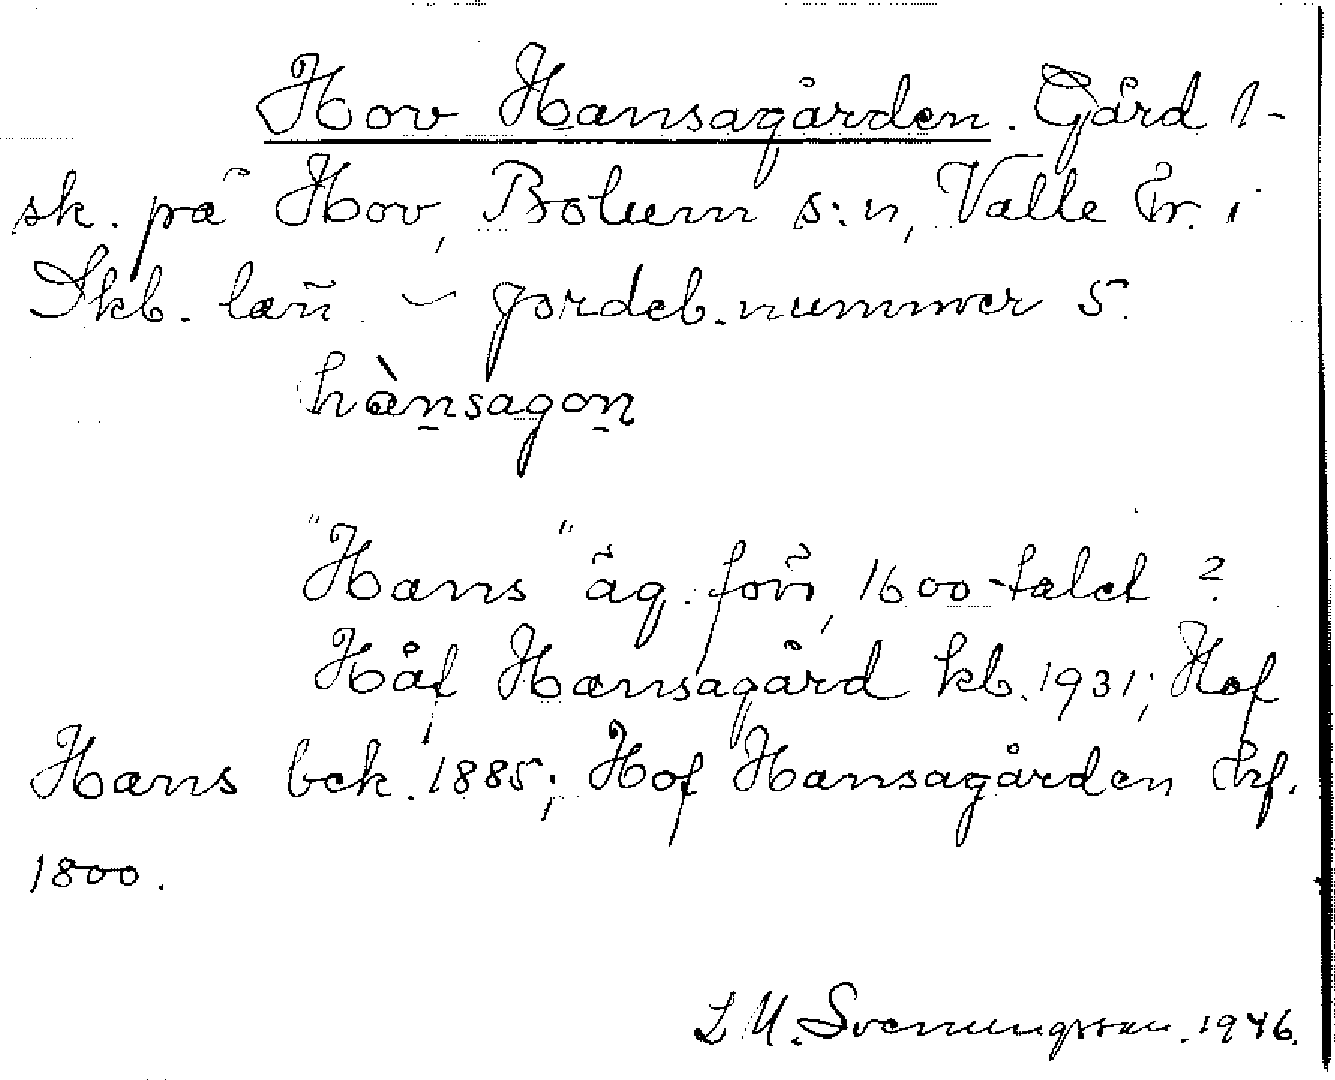 Hov Hansagården. Gård 1-
sk. på Hov, Bolum s:n, Valle hr. i
Skb. län. – Jordeb. nummer 5.
hànsagon̲
"Hans" äg. förr, 1600-talet?
Håf Hansagård kb. 1931; Hof
Hans bek. 1885; Hof Hansagården hrf.
1800.
L M. Svenungsson. 1946.